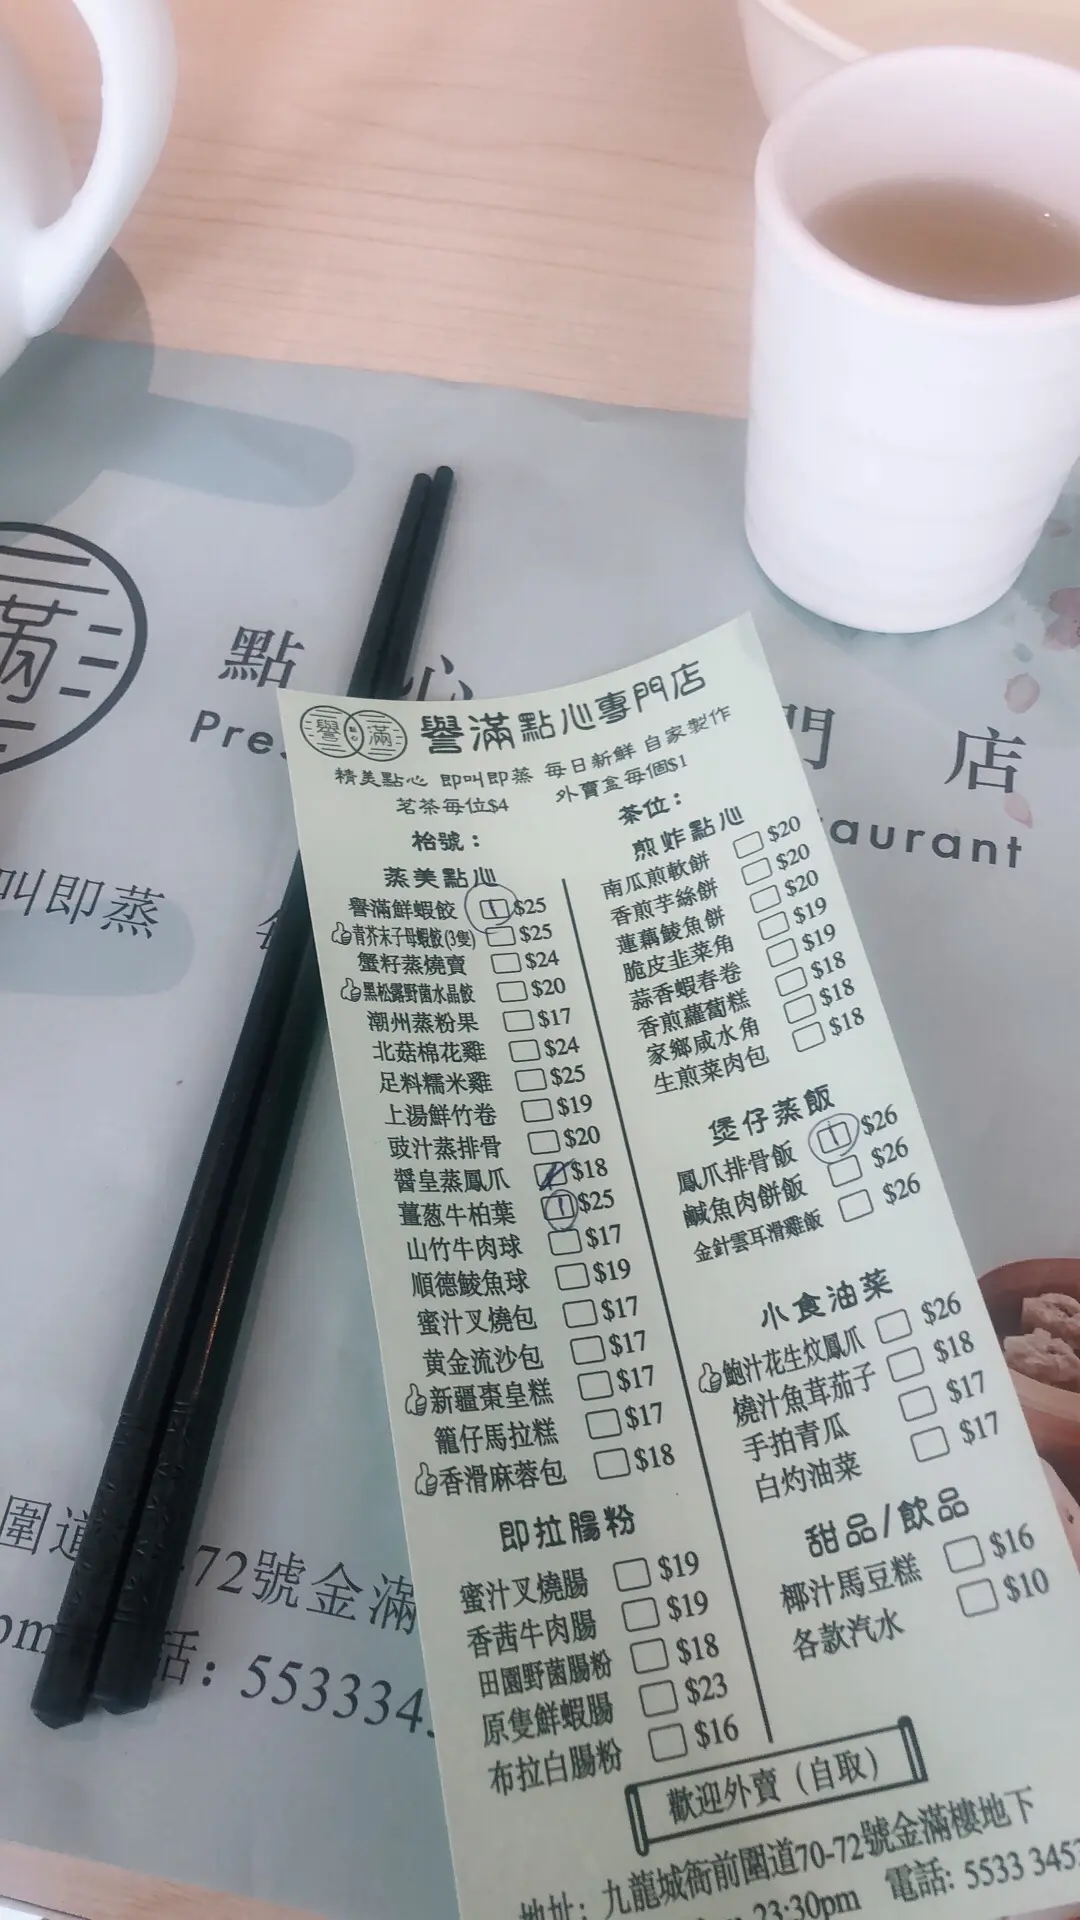 滿
點 心 門 店
Pre
aurant
叫即蒸
圍道 -72號金滿
pm 話: 5533345
譽 點心 滿 譽滿點心專門店
精美點心 即叫即蒸 每日新鮮 自家製作
茗茶每位$4 外賣盒每個$1
枱號：
茶位：
蒸美點心
譽滿鮮蝦餃 1 $25
青芥末子母蝦餃(3隻) $25
蟹籽蒸燒賣 $24
黑松露野菌水晶餃 $20
潮州蒸粉果 $17
北菇棉花雞 $24
足料糯米雞 $25
上湯鮮竹卷 $19
豉汁蒸排骨 $20
醬皇蒸鳳爪 $18
薑葱牛柏葉 1 $25
山竹牛肉球 $17
順德鯪魚球 $19
蜜汁叉燒包 $17
黄金流沙包 $17
新疆棗皇糕 $17
籠仔馬拉糕 $17
香滑麻蓉包 $18
即拉腸粉
蜜汁叉燒腸 $19
香茜牛肉腸 $19
田園野菌腸粉 $18
原隻鮮蝦腸 $23
布拉白腸粉 $16
煎炸點心
南瓜煎軟餅 $20
香煎芋絲餅 $20
蓮藕鯪魚餅 $20
脆皮韭菜角 $19
蒜香蝦春卷 $19
香煎蘿蔔糕 $18
家鄉咸水角 $18
生煎菜肉包 $18
煲仔蒸飯
鳳爪排骨飯 1 $26
鹹魚肉餅飯 $26
金針雲耳滑雞飯 $26
小食油菜
鮑汁花生炆鳳爪 $26
燒汁魚茸茄子 $18
手拍青瓜 $17
白灼油菜 $17
甜品/飲品
椰汁馬豆糕 $16
各款汽水 $10
歡迎外賣（自取）
地址：九龍城衙前圍道70-72號金滿樓地下
23:30pm 電話: 5533 345